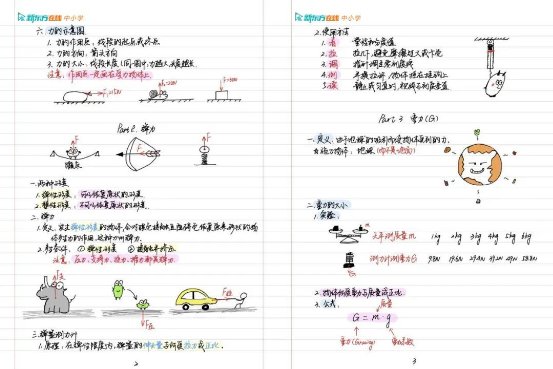 新东方在线 中小学
六、力的示意图
1. 力的作用点：线段的起点或终点.
2. 力的方向：箭头方向
3. 力的大小：线段长度(同一图中,力越大,线段越长.
注意：作用点一定画在受力物体上.
Part 2. 弹力
F
一. 两种形变
1. 弹性形变：可以恢复原状的形变.
2. 塑性形变：不可以恢复原状的形变.
二. 弹力
1. 定义：发生弹性形变的物体,会对跟它接触且使得它恢复原来形状的物
体有力的作用,这种力叫弹力.
2. 条件： ① 弹性形变 ② 接触
注意：压力、支持力、拉力、推力都是弹力.
F支
F压
三. 弹簧测力计
1. 原理：在弹性限度内,弹簧的伸长量与所受拉力成正比.
2
新东方在线 中小学
2. 使用方法
1. 看 量程和分度值
2. 拉
3. 调 指针调至零刻度线
4. 测
5. 读
Part 3 重力(G)
一. 定义：由于地球的吸引而使物体受到的力.
施力物体：地球
二. 重力的大小
1. 实验：
天平测质量m 1kg 2kg 3kg 4kg 5kg 6kg
测力计测重力G 9.8N 19.6N 29.4N 39.2N 49N 58.8N
2. 物体所受重力与质量成正比.
3. 公式： 质量
G = m · g
重力
3